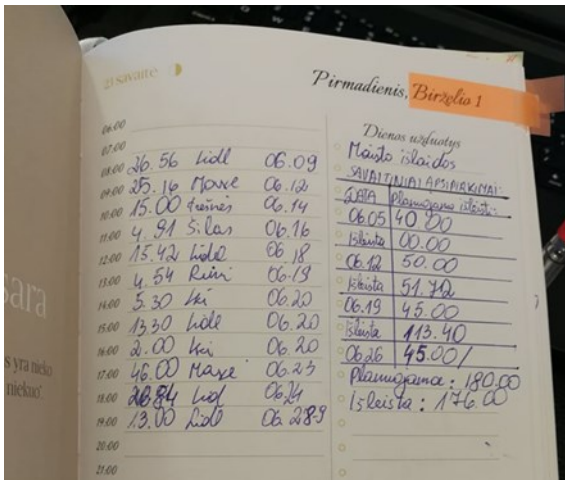 21 savaitė
Pirmadienis, Birželio 1
06:00
07:00
08:00 26.56 Lidl 06.09
09:00 25.16 Maxe 06.12
10:00 15.00 06.14
11:00 4.91 Šilas 06.16
12:00 15.42 Lidl 06.18
13:00 4.54 Rimi 06.19
14:00 5.30 Iki 06.20
15:00 13.30 Lidl 06.20
16:00 2.00 Iki 06.20
17:00 46.00 Maxe 06.23
18:00 Lidl 06.24
19:00 13.00 Lidl 06.
20:00
21:00
Dienos užduotys
Maisto išlaidos
SAVAITINIAI APSIPIRKIMAI:
DATA Planuojama išleisti:
06.05 40.00
Išleista 00.00
06.12 50.00
Išleista 51.72
06.19 45.00
Išleista 113.40
06.26 45.00/
Planuojama: 180.00
Išleista: 176.00
sara
s yra nieko
niekuo".